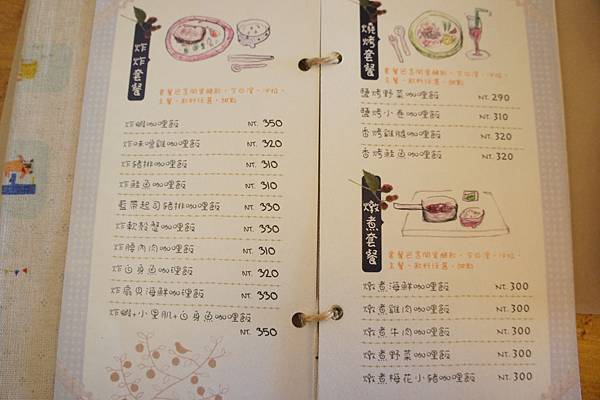 炸炸套餐
主餐、飲料任選、甜點
炸蝦咖哩飯 NT. 350
炸味噌雞咖哩飯 NT. 320
炸豬排咖哩飯 NT. 310
炸鮭魚咖哩飯 NT. 310
藍帶起司豬排咖哩飯 NT. 330
炸軟殼蟹咖哩飯 NT. 330
炸腰內肉咖哩飯 NT. 310
炸白身魚咖哩飯 NT. 320
炸扇貝海鮮咖哩飯 NT. 330
炸蝦+小里肌+白身魚咖哩飯
NT. 350
燒烤套餐
主餐、飲料任選、甜點
鹽烤野菜咖哩飯 NT. 290
鹽烤小卷咖哩飯 NT. 310
香烤雞腿咖哩飯 NT. 320
香烤鮭魚咖哩飯 NT. 320
燉煮套餐
主餐、飲料任選、甜點
燉煮海鮮咖哩飯 NT. 300
燉煮雞肉咖哩飯 NT. 300
燉煮牛肉咖哩飯 NT. 300
燉煮野菜咖哩飯 NT. 300
燉煮梅花小豬咖哩飯 NT. 300